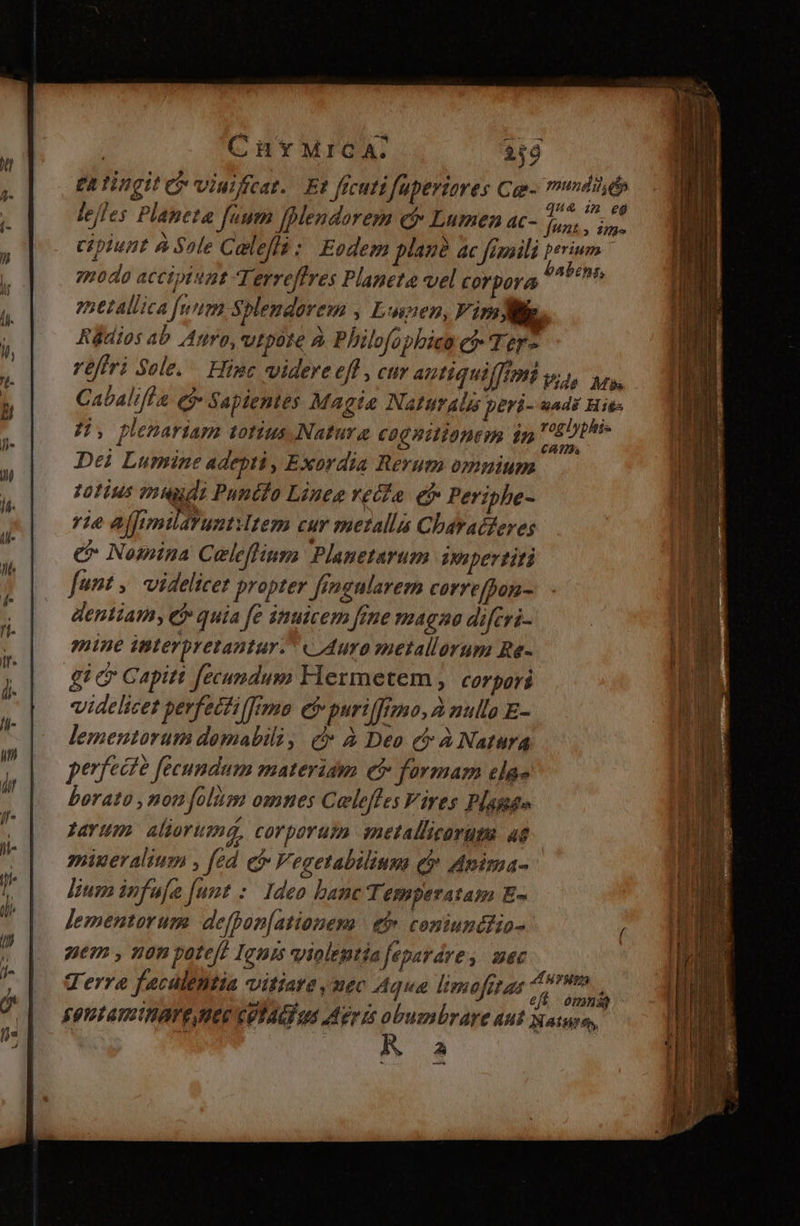 CHYMICA. 259
ea tingit & viuificat. Et ſicuti ſuperiores Cæ-
leſtes Planetæ ſuum ſplendorem & Lumen ac-
cipiunt à Sole Cæleſti: Eodem planè ac ſimili
modo accipiunt Terreſtres Planetæ vel corpora
metallica ſuum Splendorem, Lumen, Vim,
Rádios ab Auro, vtpote à Philoſophico & Ter-
réſtri Sole. Hinc videre eſt, cur antiquiſſimi
Cabaliſtæ & Sapientes Magiæ Naturalis peri-
ti, plenariam totius Naturæ cognitionem in
Dei Lumine adepti, Exordia Rerum omnium
totius mundi Puncto Lineæ rectæ & Periphe-
riæ aſſimilarunt: Item cur metallis Characteres
& Nomina Cæleſtium Planetarum impertiti
ſunt, videlicet propter ſingularem correſpon-
dentiam, & quia ſe inuicem ſine magno diſcri-
mine interpretantur. Auro metallorum Re-
gi & Capiti ſecundum Hermetem, corpori
videlicet perfectiſſimo & puriſſimo, à nullo E-
lementorum domabili, & à Deo & à Natura
perfectè ſecundum materiam & formam ela-
borato, non ſolùm omnes Cæleſtes Vires Plane-
tarum aliorumq́, corporum metallicorum ac
mineralium, ſed & Vegetabilium & Anima-
lium infuſæ ſunt: Ideo hanc Temperatam E-
lementorum deſponſationem & coniunctio-
nem, non poteſt Ignis violentia ſeparáre, nec
Terræ fæculentia vitiare, nec Aquæ limoſitas
contaminare, nec cõtactus Aëris obumbrare aut
R 2
mundũ, &
quæ in eo
ſunt, im-
perium
habens,
Vide Mo-
nadẽ Hie-
roglyphi-
cam,
Aurum
eſt omnis
Naturæ,